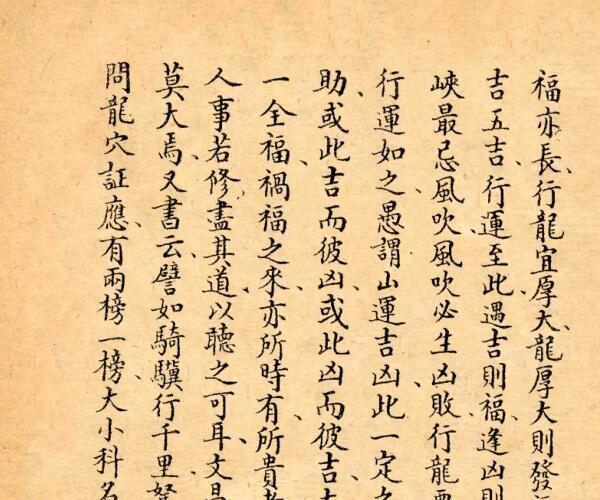 福亦長行龍宜厚大龍厚大則發
吉五吉行運至此遇吉則福逢凶則
峽最忌風吹風吹必生凶敗行龍
行運如之愚謂山運吉凶此一定之
助或此吉而彼凶或此凶而彼吉
一全福禍福之來亦所時有所貴者
人事若修盡其道以聽之可耳文昌
莫大焉又書云譬如騎驥行千里駑
問龍穴証應有兩榜一榜大小科名